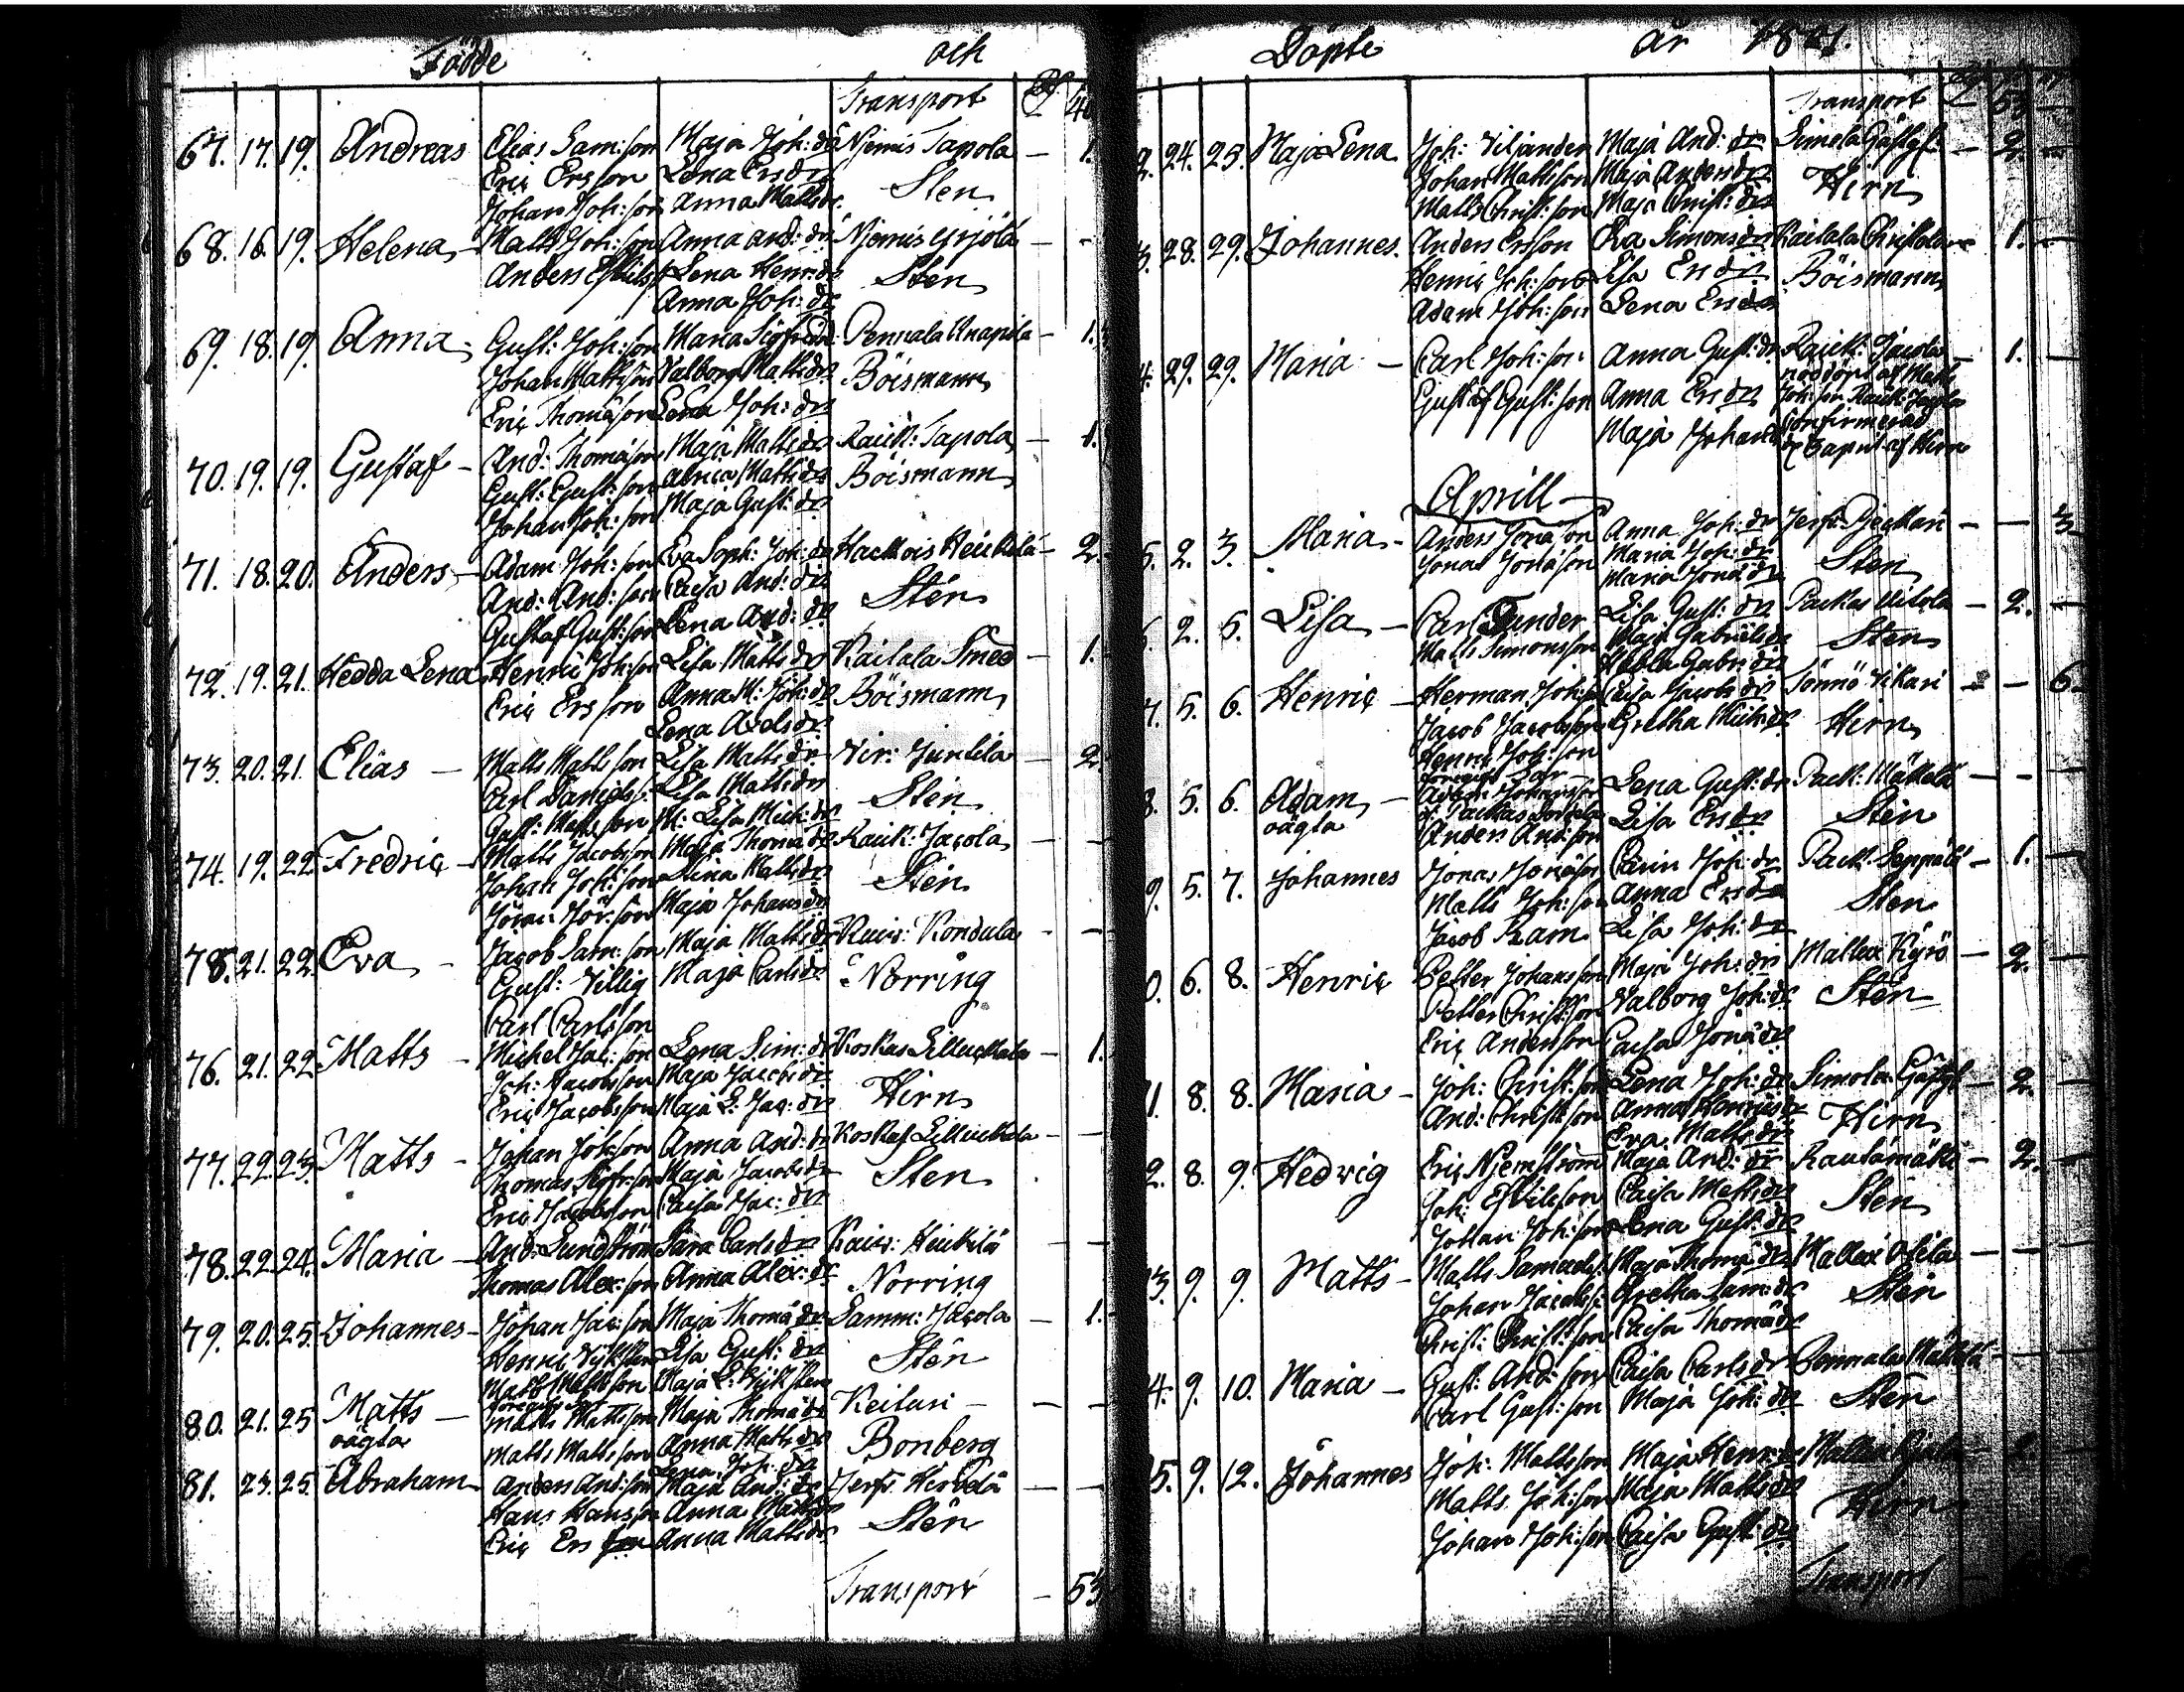 Födde och
Transport
67. 17. 19. Andreas Elias Sam: son Maja Joh: dr Njemis Tapola - 1.
Eric Ersson Lena Ersdr Sten
Johan Joh: son Anna Mattsdr
68. 16. 19. Helena - Matts Joh: son Anna And: dr Njemis Yrjölä - -
Anders Lena Henr: dr Sten
Anna Joh: dr
69. 18. 19. Anna - Gust: Joh: son Maria Sigfr: dr Pennala Anapila - 1.
Johan Mattsson Valborg Mattsdr Böismann
Eric Thomasson Lena Joh: dr
70. 19. 19. Gustaf - And: Thomasson Maja Mattsdr Rauk: Tapola - 1.
Gust: Gust: son Mattsdr Böismann
Johan Joh: son Maja Gust: dr
71. 18. 20. Anders - Adam Joh: son Eva Soph: Joh: dr Hackois Heickilä - 2.
And: And: son Caisa And: dr Sten
Gustaf Gust: son Lena And: dr
72. 19. 21. Hedda Lena Henric Joh: son Lisa Matts dr Railala Smed - 1.
Eric Ersson Anna M: Joh: dr Böismann
Lena Axelsdr
73. 20. 21. Elias - Matts Matts son Lisa Mattsdr Vir: Juntila - 2.
Carl Daniels: Lisa Mattsdr Sten
Gust: Mattsson M: Lisa Mich: dr
74. 19. 22. Fredric - Matts Jacobsson Maja Thomadr Rauk: Jacola - -
Johan Joh: son Mattsdr Sten
Jöran Jör: son Maja Johansdr
75. 21. 22. Eva - Jacob Sam: son Maja Mattsdr Kondula - -
Gust: Villig Maja Carlsdr Norring
Carl Carlsson
76. 21. 22. Matts - Michel Jac: son Lena Sim: dr Koskas - 1.
Joh: Jacobsson Maja Jacobsdr Hirn
Eric Jacobsson Maja L: Jac: dr
77. 22. 23. Matts - Johan Joh: son Anna And: dr Koskas - -
Thomas Sigfr: son Maja Jacobsdr Sten
Eric Jacobsson Caisa Jac: dr
78. 22. 24. Maria - And: Lundström Sara Carlsdr Heickilä - -
Thomas Alex: son Anna Alex: dr Norring
79. 20. 25. Johannes - Johan Jac: son Maja Thomä dr Samm: Jacola - 1.
Henric Lisa Gust: dr Sten
Matts Mattsson Maja L:
80. 21. 25 Matts - föregifv. far Matts Mattsson Maja Thomädr Keituri - - -
oägta Matts Mattsson Anna Mattsdr Bonberg
Lena Joh: dr
81. 23. 25. Abraham Anders And: son Maja And: dr Jerfv: - -
Hans Hansson Anna Mattsdr Sten
Eric Ersson Anna Mattsdr
Transport - 53
Döpte år 1821.
Transport 53
24. 25. Maja Lena Joh: Viljander Maja And: dr Simola Gästgf: - 2. -
Johan Mattsson Maja Andersdr Hirn
Matts Christ: son Maja Christ: dr
28. 29. Johannes. Anders Ersson Eva Simonsdr Railala Christola - 1. -
Henric Joh: son Lisa Ersdr Böismann
Adam Joh: son Lena Ersdr
29. 29. Maria - Carl Joh: son Anna Gust: dr Rauk: Jacola - 1. -
Gustaf Gust: son Anna Ersdr nöddöpt af Matts
Maja Johansdr Joh: son Rauk: Jacola
confirmerad
af Hirn
Aprill
2. 3. Maria - Anders Jonasson Anna Joh: dr Jerfv: - - 3
Jonas Jonasson Maria Joh: dr Sten
Maria Jonädr
2. 5. Lisa - Carl Tunder Lisa Gust: dr Packas Uitola - 2. -
Matts Simonsson Maja Gabrielsdr Sten
Hebla Gabr: dr
5. 6. Henric - Herman Joh: son Caisa Jacobsdr Sönnö Vikari - - 6.
Jacob Jacobsson Gretha Mich: dr Hirn
Henric Joh: son
5. 6. Adam - föregifv. Far Adam Johansson Lena Gust: dr Pack: Mäkkelä - - -
oägta Packas Anders And: son Lisa Ersdr Sten
5. 7. Johannes Jonas Jonasson Carin Joh: dr Pack: Seppälä - 1. -
Matts Joh: son Anna Ersdr Sten
Jacob Ram Lisa Joh: dr
6. 8. Henric Petter Johansson Maja Joh: dr Mallux Kyrö - 2. -
Petter Christ: son Valborg Joh: dr Sten
Eric Andersson Caisa Jonädr
8. 8. Maria - Joh: Christ: son Lena Joh: dr Simola Gästgf: - 2. -
And: Christ: son Anna Henricsdr Hirn
Eva Mattsdr
8. 9. Hedvig Eric Njemström Maja And: dr Rautamäki - 2. -
Joh: Eskilsson Caisa Mattsdr Sten
Johan Joh: son Lena Gust: dr
9. 9. Matts - Matts Samuels: Maja Thomä dr Mallux - - -
Johan Jacobss: Gretha Sam: dr Sten
Christ: Christ: son Caisa Thomädr
9. 10. Maria - Gust: And: son Caisa Carlsdr Pennala - - -
Carl Gust: son Maja Joh: dr Sten
9. 12. Johannes Joh: Mattsson Maja Henr: dr Mallux
Matts Joh: son Maja Mattsdr Hirn
Johan Joh: son Caisa Gust: dr
Transport